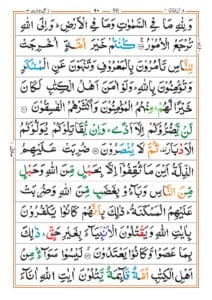 وَلِلّٰهِ مَا فِي السَّمٰوٰتِ وَمَا فِي الْاَرْضِ ؕ وَاِلَى اللّٰهِ
تُرْجَعُ الْاُمُوْرُ ۝ كُنْتُمْ خَيْرَ اُمَّةٍ اُخْرِجَتْ
لِلنَّاسِ تَاْمُرُوْنَ بِالْمَعْرُوْفِ وَتَنْهَوْنَ عَنِ الْمُنْكَرِ
وَتُؤْمِنُوْنَ بِاللّٰهِ ؕ وَلَوْ اٰمَنَ اَهْلُ الْكِتٰبِ لَكَانَ
خَيْرًا لَّهُمْ ؕ مِنْهُمُ الْمُؤْمِنُوْنَ وَاَكْثَرُهُمُ الْفٰسِقُوْنَ ۝
لَنْ يَّضُرُّوْكُمْ اِلَّاۤ اَذًى ؕ وَاِنْ يُّقَاتِلُوْكُمْ يُوَلُّوْكُمُ
الْاَدْبَارَ ۫ ثُمَّ لَا يُنْصَرُوْنَ ۝ ضُرِبَتْ عَلَيْهِمُ
الذِّلَّةُ اَيْنَ مَا ثُقِفُوْۤا اِلَّا بِحَبْلٍ مِّنَ اللّٰهِ وَحَبْلٍ
مِّنَ النَّاسِ وَبَآءُوْ بِغَضَبٍ مِّنَ اللّٰهِ وَضُرِبَتْ
عَلَيْهِمُ الْمَسْكَنَةُ ؕ ذٰلِكَ بِاَنَّهُمْ كَانُوْا يَكْفُرُوْنَ
بِاٰيٰتِ اللّٰهِ وَيَقْتُلُوْنَ الْاَنْۢبِيَآءَ بِغَيْرِ حَقٍّ ؕ ذٰلِكَ
بِمَا عَصَوْا وَّكَانُوْا يَعْتَدُوْنَ ۝ لَيْسُوْا سَوَآءً ؕ مِنْ
اَهْلِ الْكِتٰبِ اُمَّةٌ قَآئِمَةٌ يَّتْلُوْنَ اٰيٰتِ اللّٰهِ اٰنَآءَ